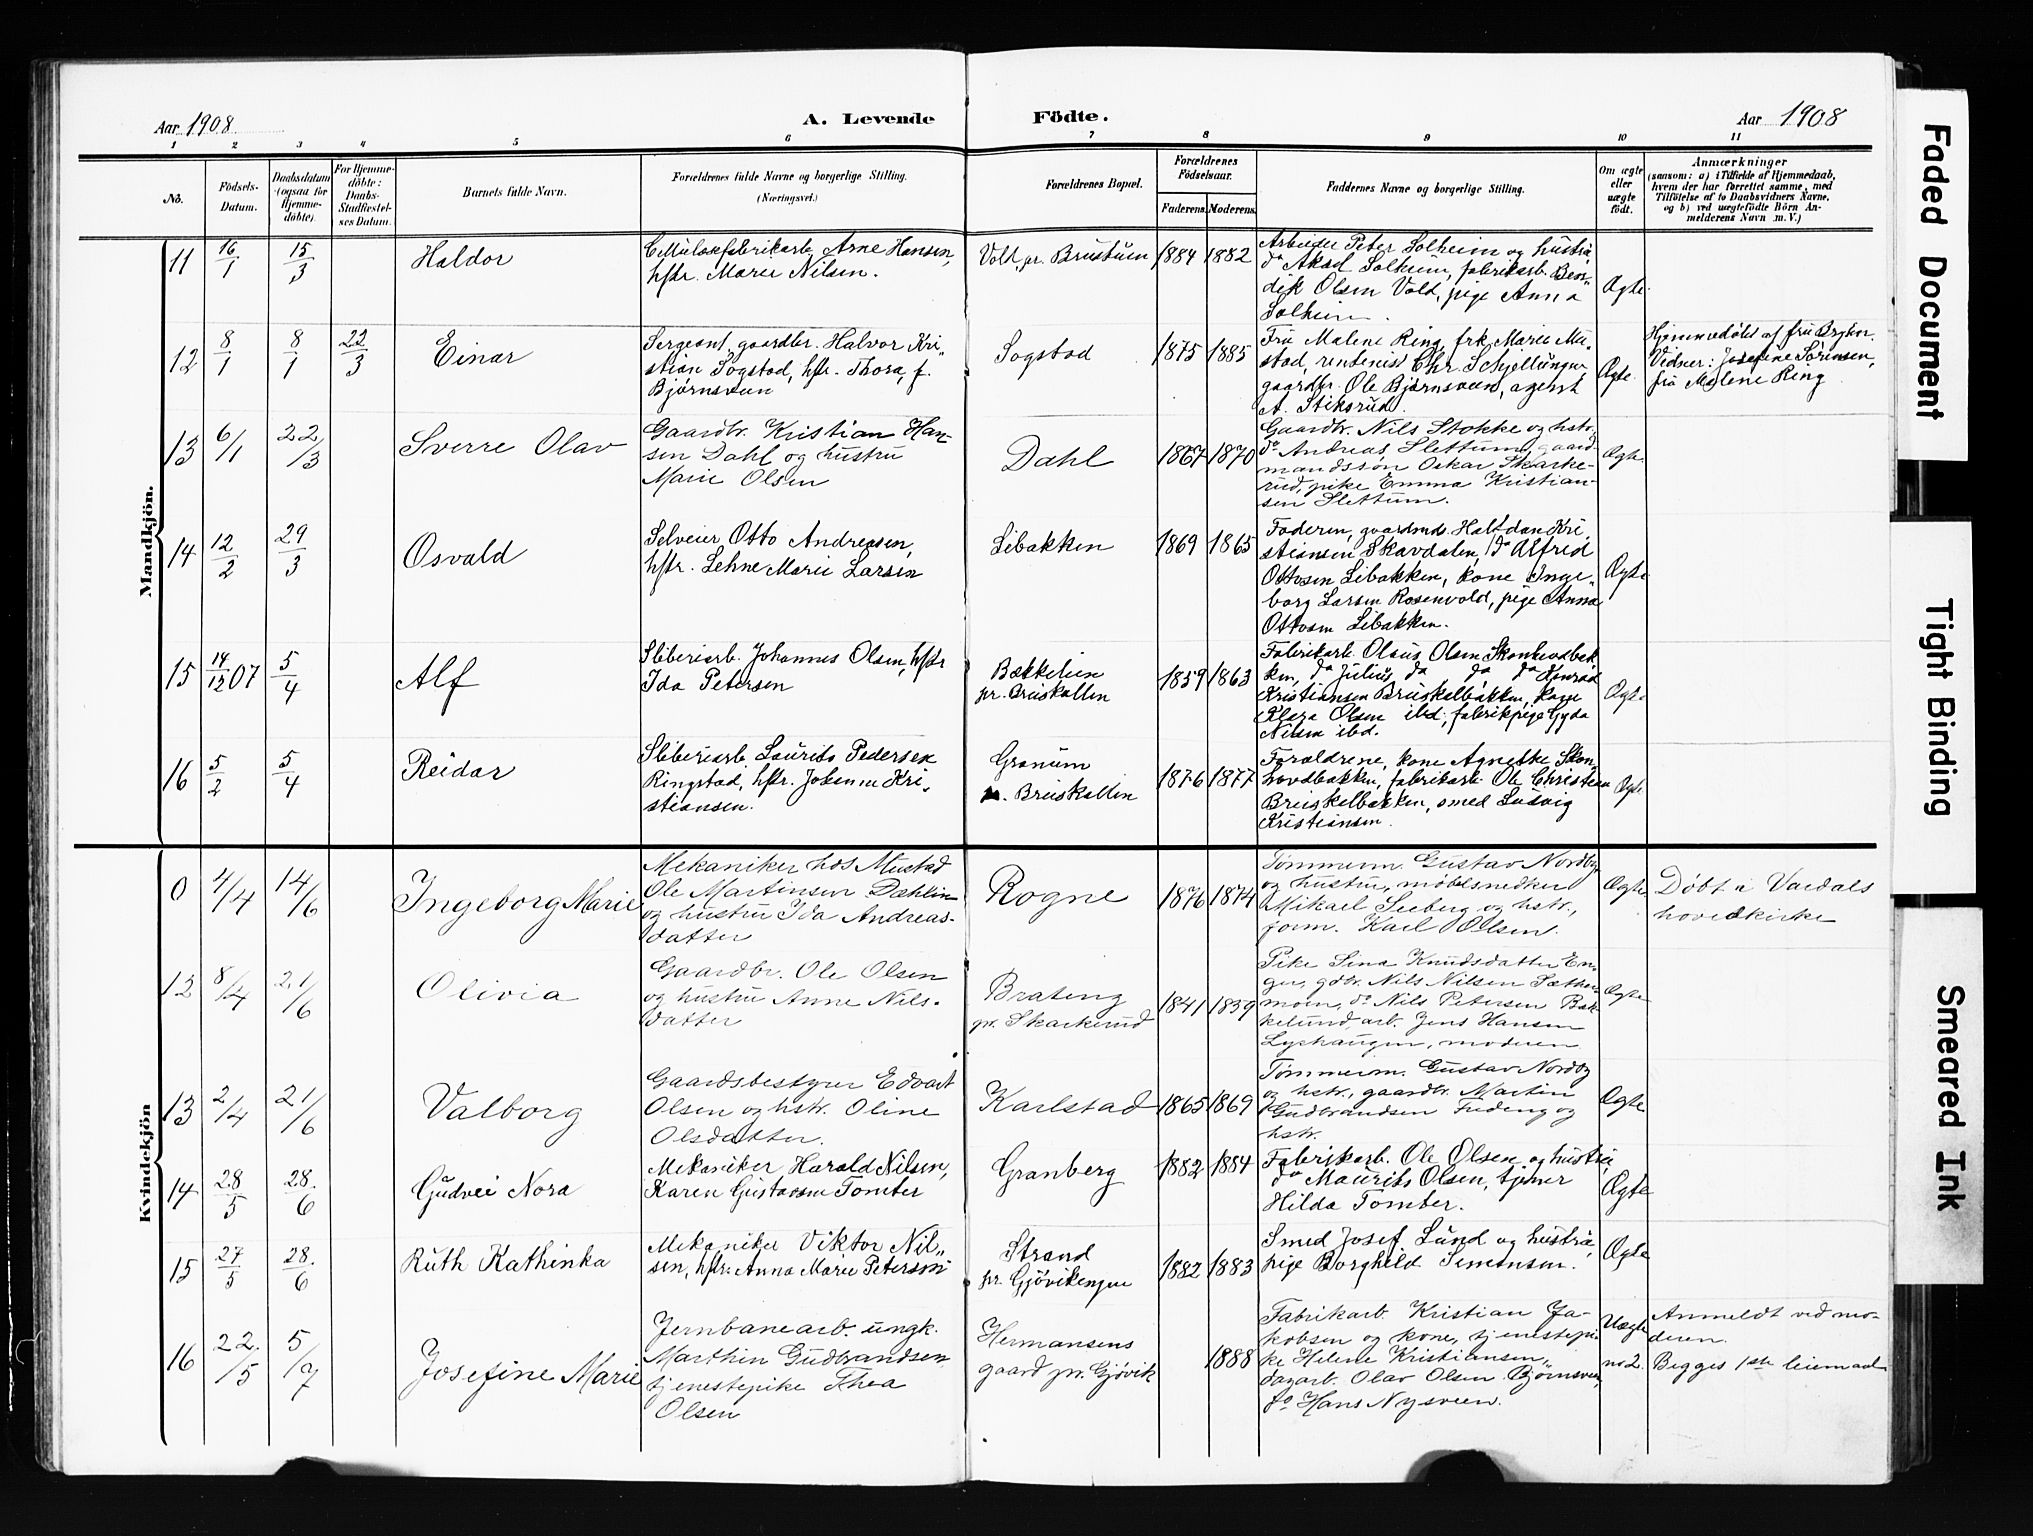 Aar 1908
A. Levende Födte.
Aar 1908
1 2 3 4 5 6 7 8 9 10 11
No.
Födsels-
Datum.
Daabsdatum
(ogsaa for
Hjemme-
döbte).
For Hjemme-
döbte:
Daabs-
Stadfæstel-
ses Datum.
Barnets fulde Navn.
Forældrenes fulde Navne og borgerlige Stilling.
(Næringsvei.)
Forældrenes Bopæl.
Forældrenes
Födselsaar.
Faderens. Moderens.
Faddernes Navne og borgerlige Stilling.
Om ægte
eller
uægte
födt.
Anmærkninger
(saasom: a) i Tilfælde af Hjemmedaab,
hvem der har forrettet samme, med
Tilföielse af to Daabsvidners Navne,
og b) ved uægtefödte Börn An-
melderens Navn m. V.)
Mandkjön.
11 16/1 15/3
Haldor
Arne Hansen,
hstr. Marie Nilsen.
Vold, pr. Brustuen
1884 1882
Arbeider Peter Solheim og hustru,
do Aksel Solheim, fabrikarb. Ben-
dik Olsen Vold, pige Anna
Solheim.
Ægte.
12 8/1 8/1 22/3
Einar
Sergeant, gaardbr. Halvor Kri-
stian Sogstad, hstr. Thora, f.
Bjørnsveen
Sogstad
1875 1885
Fru Malene Ring, frk. Marie Mu-
stad, rentenist Chr. Schjellungen
gaardbr. Ole Bjørnsveen, agent
A. Stiksrud.
Ægte.
Hjemmedøbt af fru
Vidner: Josefine Sørensen,
fru Malene Ring
13 6/1 22/3
Sverre Olav
Gaardbr. Kristian Han-
sen Dahl og hustru
Marie Olsen
Dahl
1867 1870
Gaardbr. Nils Stokke og hstr.
do Andreas Slettum, gaard-
mandssøn Oskar Skarke-
rud, pike Emma Kristian-
sen Slettum.
Ægte.
14 12/2 29/3
Osvald
Selveier Otto Andreasen,
hstr. Lehne Marie Larsen
Libakken
1869 1865
Faderen, gaardmd. Halfdan Kri-
stiansen Skavdalen, do Alfred
Ottosen Libakken, kone Inge-
borg Larsen Rosenvold, pige Anna
Ottosen Libakken.
Ægte.
15 14/12 07 5/4
Alf
Sliberiarb. Johannes Olsen, hstr
Ida Petersen
Bækkelien
pr. Breiskallen
1859 1863
Fabrikarb. Olaus Olsen Skonhovdbak-
ken, do Julius do do do Konrad
Kristiansen Breiskalbakken, kone
Klara Olsen ibd, fabrikpige Gyda
Nilsen ibd.
Ægte
16 5/2 5/4
Reidar
Sliberiarb. Laurits Pedersen
Ringstad, hstr. Johanne Kri-
stiansen.
Granum
pr. Breiskallen
1876 1877
Forældrene, kone Agnethe Skon-
hovdbakken, fabrikarb. Ole Christian
Breiskalbakken, smed Ludvig
Kristiansen.
Ægte
Kvindekjön
0 4/4 14/6
Ingeborg Marie
Mekaniker hos Mustad
Ole Martinsen Dæhlin
og hustru Ida Andreas-
datter
Rogne
1876 1874
Tømmerm. Gustav Nordby
og hustru, møbelsnedker
Mikael Seeberg og hstr.,
form. Karl Olsen.
Ægte
Døbt i Vardals
hovedkirke
12 8/4 21/6
Olivia
Gaardbr. Ole Olsen
og hustru Anne Nils-
datter
Brateng
pr. Skarkerud
1841 1859
Pike Sina Knudsdatter En-
ger, gdbr. Nils Nilsen Sæther-
moen, do Nils Petersen Bæk-
kelund, arb. Jens Hansen
Lyshaugen, moderen
Ægte
13 2/4 21/6
Valborg
Gaardsbestyrer Edvart
Olsen og hstr. Oline
Olsdatter.
Karlstad
1865 1869
Tømmerm. Gustav Nordby
og hstr., gaardbr. Martin
Gudbrandsen Fredeng og
hstr.
Ægte
14 28/5 28/6
Gudvei Nora
Mekaniker Harald Nilsen,
Karen Gustavsen Tomter
Granberg
1882 1884
Fabrikarb. Ole Olsen og hustru,
do Maurits Olsen, tjener
Hilda Tomter.
Ægte
15 27/5 28/6
Ruth Kathinka
Mekaniker Viktor Nil-
sen, hstr. Anna Marie Peterson
Strand
pr. Gjövikengen
1882 1883
Smed Josef Lund og hustru,
pige Borghild Simensen.
Ægte
16 22/5 5/7
Josefine Marie
Jernbanearb. ungk.
Marthin Gudbrandsen,
tjenestepike Thea
Olsen
Hermansens
gaard pr. Gjøvik
1888
Fabrikarb. Kristian Ja-
kobsen og kone, tjenestepi-
ke Helene Kristiansen,
dagarb. Olav Olsen Bjørnsveen,
do Hans Nysveen.
Uægte
no 2.
Anmeldt ved mo-
deren.
Begges 1ste leiemaal
Faded Document
Tight Binding
Smeared Ink